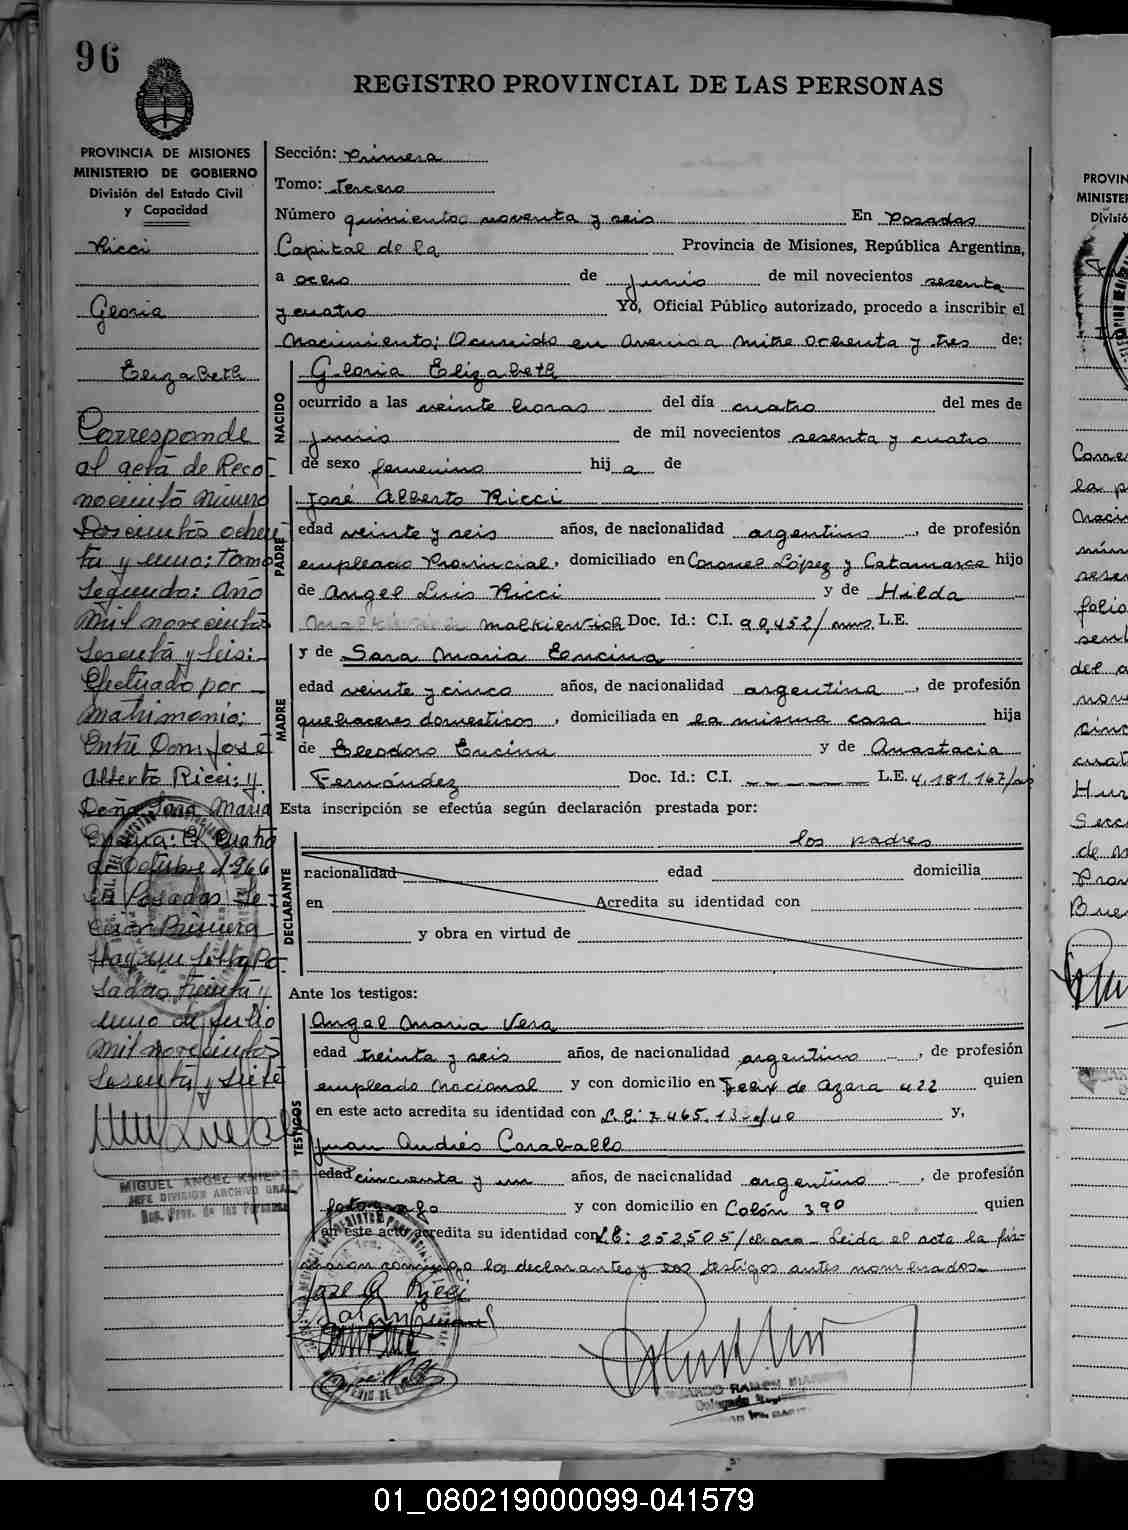 96
REGISTRO PROVINCIAL DE LAS PERSONAS
PROVINCIA DE MISIONES
MINISTERIO DE GOBIERNO
División del Estado Civil
y Capacidad
Ricci
Gloria
Elizabeth
Corresponde
al acta de Reco-
nocimiento número
Doscientos ochen
ta y uno: Tomo
Segundo: Año
Mil novecientos
Sesenta y seis:
Efectuado por
Matrimonio:
Entre Don José
Alberto Ricci: y
Doña Sara María
Encina: El cuatro
de Octubre 1966
en Posadas Se-
cción Primera
Po
sadas Treinta y
uno de Julio
Mil novecientos
Sesenta y siete
MIGUEL ANGEL
JEFE DIVISION ARCHIVO GRAL
Reg. Prov. de las Personas
Sección: Primera
Tomo: Tercero
Número quinientos noventa y seis En Posadas
Capital de la Provincia de Misiones, República Argentina,
a ocho de Junio de mil novecientos sesenta
y cuatro Yo, Oficial Público autorizado, procedo a inscribir el
Nacimiento: Ocurrido en Avenida Mitre ochenta y tres de:
NACIDO
Gloria Elizabeth
ocurrido a las veinte horas del día cuatro del mes de
Junio de mil novecientos sesenta y cuatro
de sexo femenino hij a de
PADRE
José Alberto Ricci
edad veinte y seis años, de nacionalidad argentino, de profesión
empleado Provincial, domiciliado en Coronel López y Catamarca hijo
de Angel Luis Ricci y de Hilda
Malkievich Doc. Id.: C.I. 90,452/ mns. L.E.
MADRE
y de Sara María Encina
edad veinte y cinco años, de nacionalidad argentina, de profesión
quehaceres domesticos, domiciliada en la misma casa hija
de Eleodoro Encina y de Anastacia
Fernández Doc. Id.: C.I. ------ L.E. 4.181.167/
Esta inscripción se efectúa según declaración prestada por:
DECLARANTE
los padres
nacionalidad edad domicilia
en Acredita su identidad con
y obra en virtud de
Ante los testigos:
TESTIGOS
Angel María Vera
edad treinta y seis años, de nacionalidad argentino, de profesión
empleado Nacional y con domicilio en Felix de Azara 422 quien
en este acto acredita su identidad con L.E: 7.465.13 y,
Juan Andrés Caraballo
edad cincuenta y un años, de nacionalidad argentino, de profesión
fotografo y con domicilio en Colón 390 quien
en este acto acredita su identidad con L.E: 252,505/ Leida el acta la fir-
maron conmigo los declarantes y los testigos antes nombrados
Jose A Ricci
01_080219000099-041579